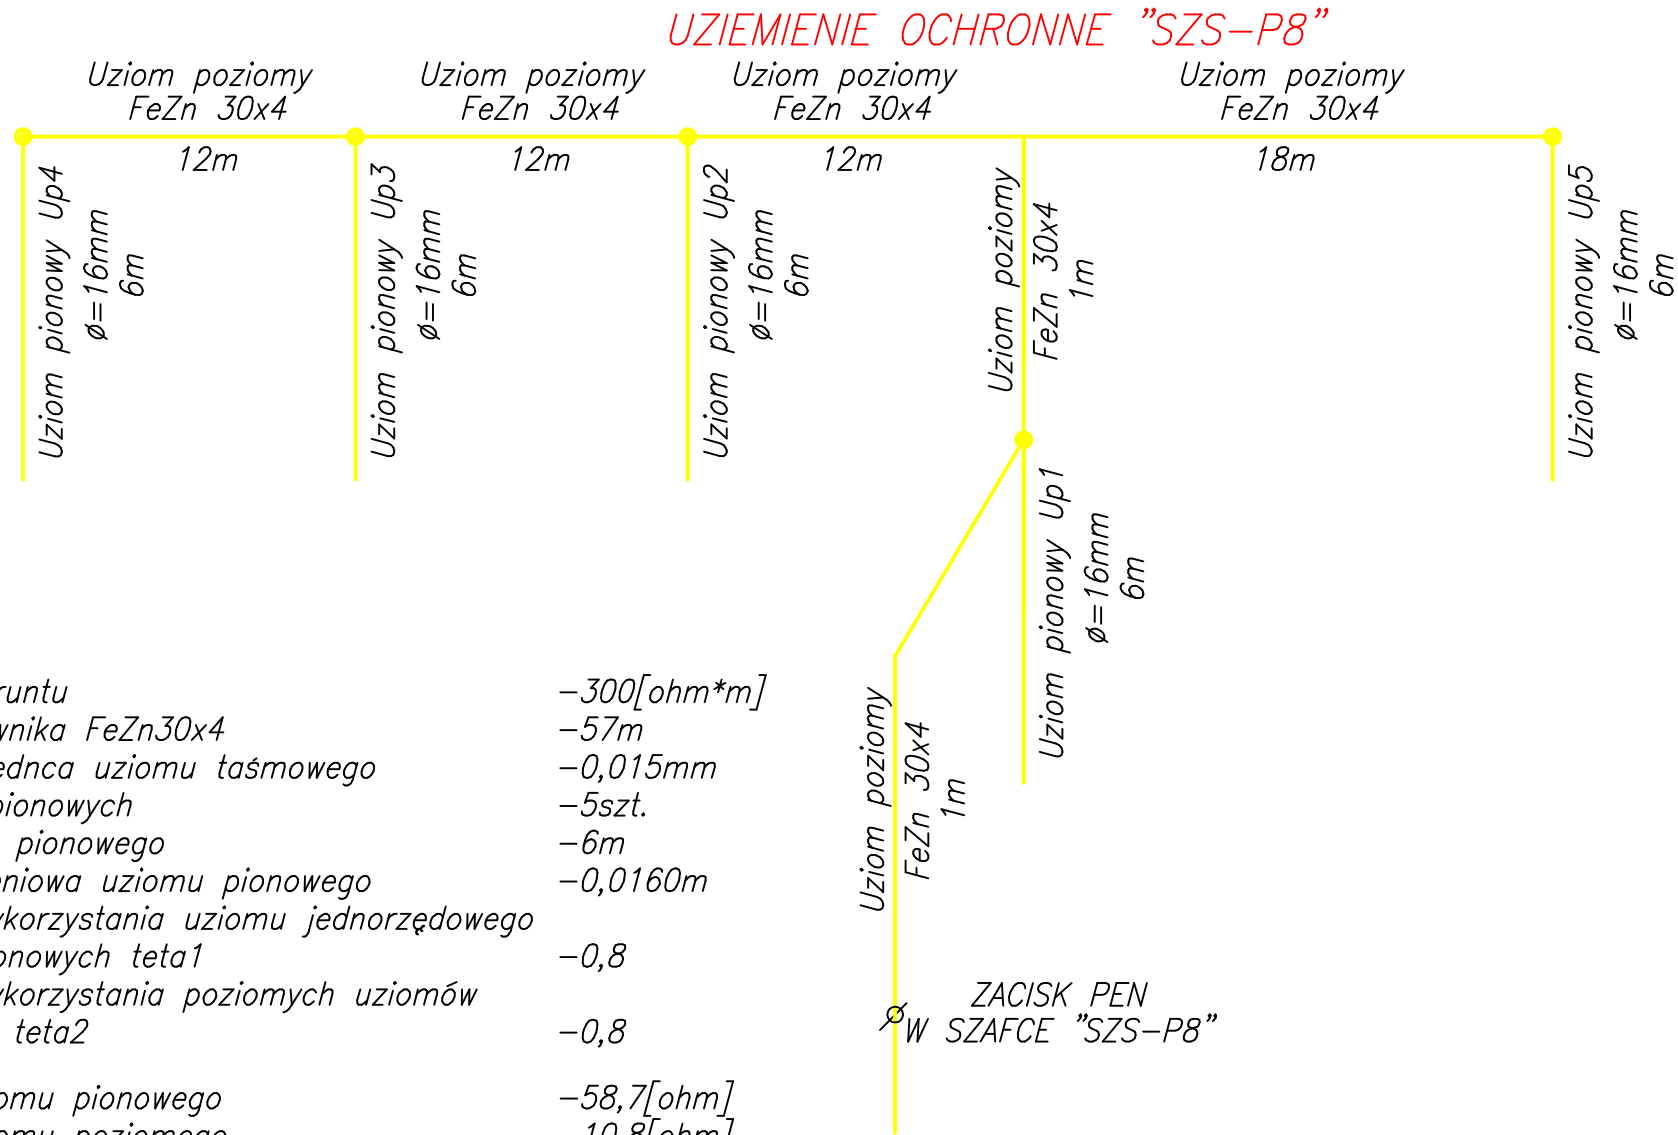 UZIEMIENIE OCHRONNE "SZS-P8"
Uziom poziomy
FeZn 30x4
12m
Uziom poziomy
FeZn 30x4
12m
Uziom poziomy
FeZn 30x4
12m
Uziom poziomy
FeZn 30x4
18m
Uziom pionowy Up4
ø=16mm
6m
Uziom pionowy Up3
ø=16mm
6m
Uziom pionowy Up2
ø=16mm
6m
Uziom poziomy
FeZn 30x4
1m
Uziom pionowy Up5
ø=16mm
6m
Uziom pionowy Up1
ø=16mm
6m
Uziom poziomy
FeZn 30x4
1m
ZACISK PEN
W SZAFCE "SZS-P8"
runtu -300[ohm*m]
wnika FeZn30x4 -57m
ednca uziomu taśmowego -0,015mm
pionowych -5szt.
pionowego -6m
eniowa uziomu pionowego -0,0160m
ykorzystania uziomu jednorzędowego
onowych teta1 -0,8
ykorzystania poziomych uziomów
teta2 -0,8
omu pionowego -58,7[ohm]
omu poziomego 10,8[ohm]